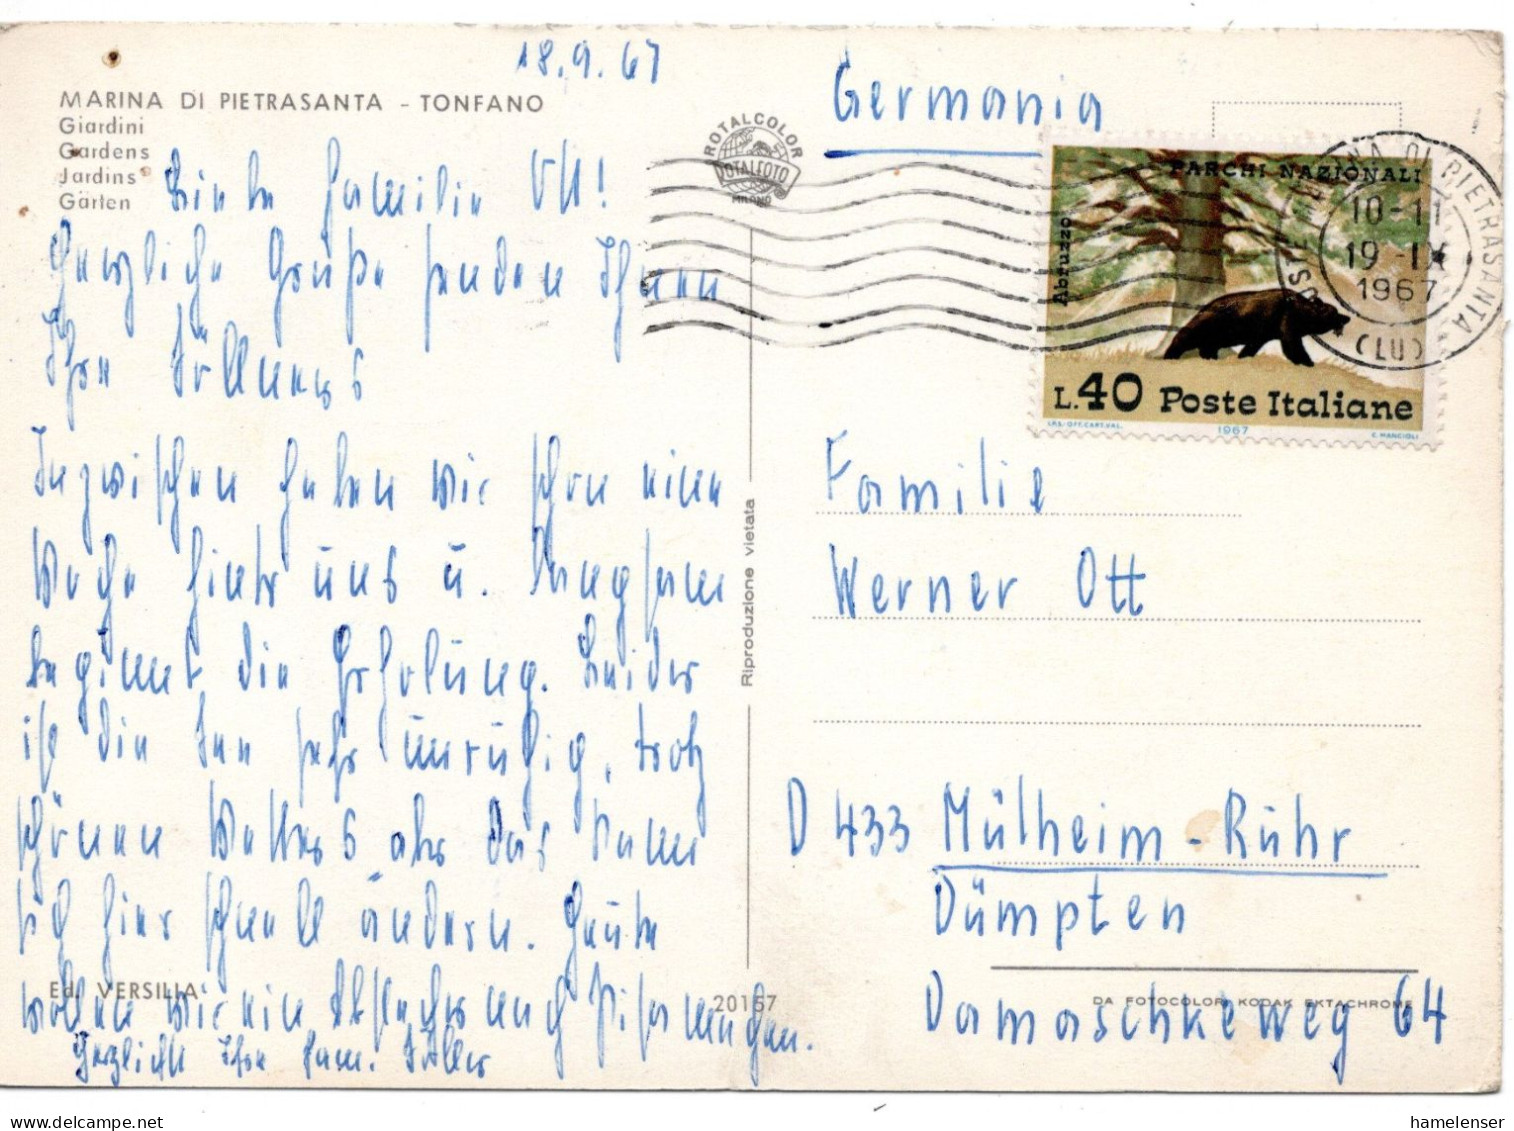 18.9.67
MARINA DI PIETRASANTA - TONFANO
Giardini
Gardens
Jardins
Gärten
Liebe Familie Ott!
Herzliche Grüße senden Ihnen
Ihre
Inzwischen haben wir schon eine
Woche hinter uns u. langsam
beginnt die Erholung. Leider
ist die See sehr unruhig, trotz
schönen Wetters aber das kann
sich hier schnell ändern. Heute
wollen wir ein Abstecher nach Pisa machen.
Herzlichst Ihre Fam.
Ed. VERSILIA
20167
Riproduzione vietata
ROTALCOLOR
ROTALFOTO
MILANO
Germania
PARCHI NAZIONALI
Abruzzo
L.40 Poste Italiane
I.P.S.-OFF. CART. VAL.
1967
C. MANCIOLI
POSTE MARINA DI PIETRASANTA
10-11
19-IX
1967
(LU)
Familie
Werner Ott
D 433 Mülheim-Ruhr
Dümpten
DA FOTOCOLOR KODAK EKTACHROME
Damaschkeweg 64
hamelenser